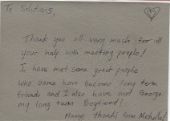 To Solutions,
Thank you all very much for all
your help with meeting people!
I have met some great people
who have become long term
friends and I also have met George
my long term Boyfriend!
Many thanks from